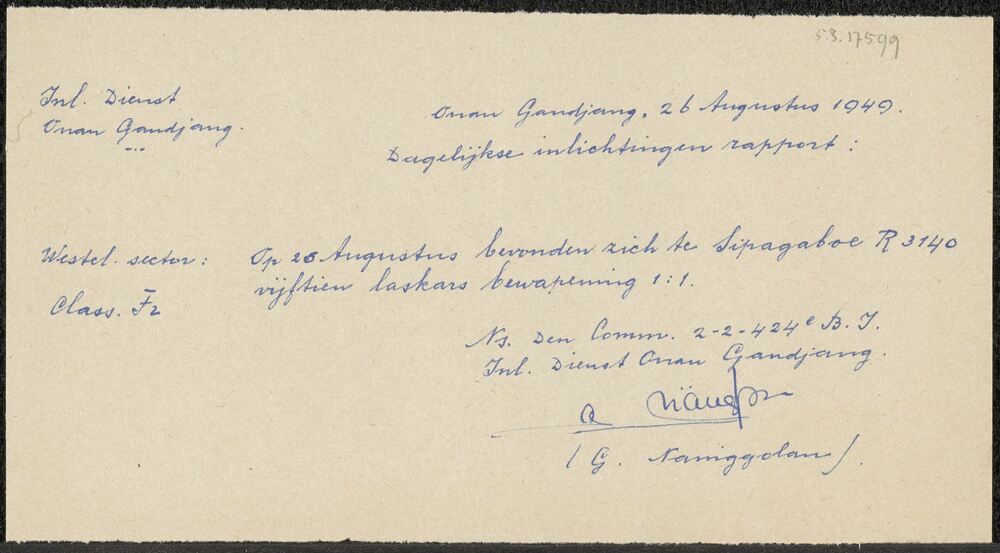 53.17599
Inl. Dienst
Onan Gandjang.
Onan Gandjang, 26 Augustus 1949.
Dagelijkse inlichtingen rapport :
Westel. sector : Op 25 Augustus bevonden zich te Sipagaboe R 3140
vijftien laskars bewapening 1:1.
Class. F2
Ns. Den Comm. 2-2-424e B.I.
Inl. Dienst Onan Gandjang.
( G. Naniggolan ).